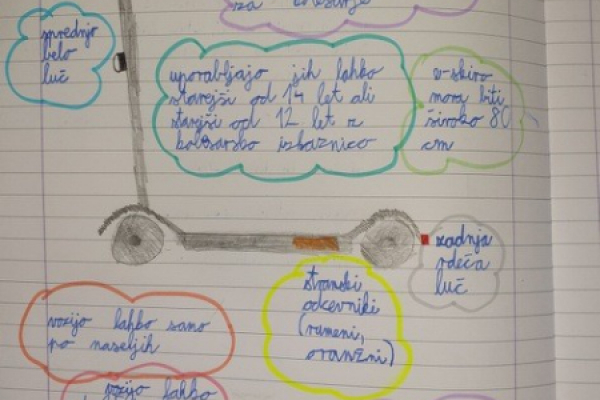 za
sprednjo
belo
luč
uporabljajo jih lahko
starejši od 14 let ali
starejši od 12 let z
kolesarsko izkaznico
e-skiro
mora biti
široko 80
cm
zadnja
rdeča
luč
stranski
odsevniki
(rumeni,
oranžni)
vozijo lahko samo
po naseljih
vozijo lahko